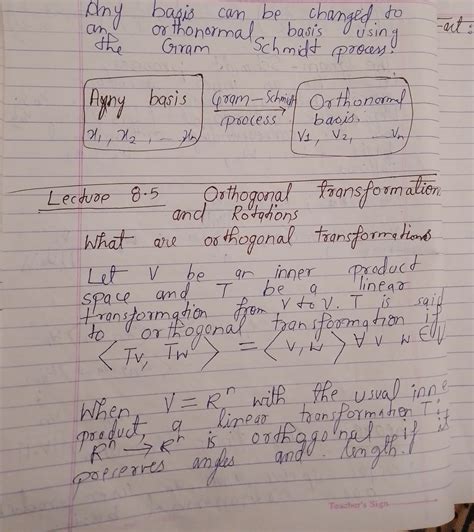 Any basis can be changed to
an orthonormal basis using
the Gram Schmidt process.
-art:
Any basis
x1, x2, ... xn
Gram-Schmidt
process
Orthonormal
basis.
v1, v2, ... vn
Lecture 8.5 Orthogonal transformation
and Rotations
What are orthogonal transformations
Let V be an inner product
space and T be a linear
transformation from V to V. T is said
to orthogonal transformation if
⟨Tv, Tw⟩ = ⟨v, w⟩ ∀ v w ∈ V
When V = Rⁿ with the usual inne
product, a linear transformation T:
Rⁿ → Rⁿ is orthogonal if it
preserves angles and length.
Teacher's Sign